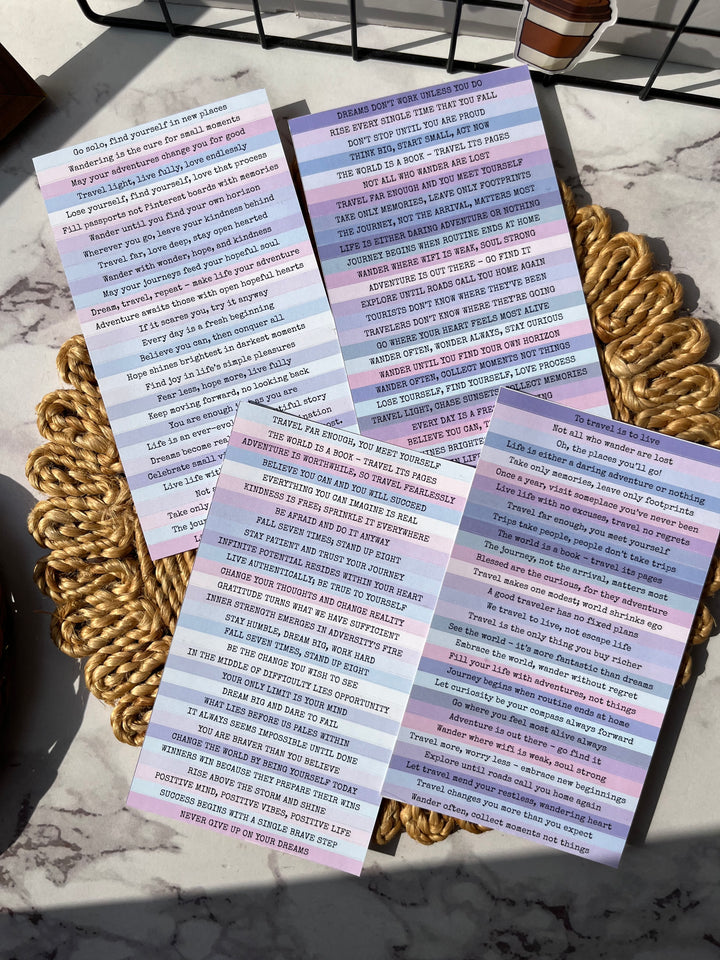 Go solo, find yourself in new places
Wandering is the cure for small moments
May your adventures change you for good
Travel light, live fully, love endlessly
Lose yourself, find yourself, love that process
Fill passports not Pinterest boards with memories
Wander until you find your own horizon
Wherever you go, leave your kindness behind
Travel far, love deep, stay open hearted
Wander with wonder, hope, and kindness
May your journeys feed your hopeful soul
Dream, travel, repeat - make life your adventure
Adventure awaits those with open hopeful hearts
If it scares you, try it anyway
Every day is a fresh beginning
Believe you can, then conquer all
Hope shines brightest in darkest moments
Find joy in life's simple pleasures
Fear less, hope more, live fully
Keep moving forward, no looking back
You are enough as you are
Life is an ever-evo tiful story
Dreams become rea ination
Celebrate small v most.
Live life with
Not
Take only
The jour
DREAMS DON'T WORK UNLESS YOU DO
RISE EVERY SINGLE TIME THAT YOU FALL
DON'T STOP UNTIL YOU ARE PROUD
THINK BIG, START SMALL, ACT NOW
THE WORLD IS A BOOK – TRAVEL ITS PAGES
NOT ALL WHO WANDER ARE LOST
TRAVEL FAR ENOUGH AND YOU MEET YOURSELF
TAKE ONLY MEMORIES, LEAVE ONLY FOOTPRINTS
THE JOURNEY, NOT THE ARRIVAL, MATTERS MOST
LIFE IS EITHER DARING ADVENTURE OR NOTHING
JOURNEY BEGINS WHEN ROUTINE ENDS AT HOME
WANDER WHERE WIFI IS WEAK, SOUL STRONG
ADVENTURE IS OUT THERE – GO FIND IT
EXPLORE UNTIL ROADS CALL YOU HOME AGAIN
TOURISTS DON'T KNOW WHERE THEY'VE BEEN
TRAVELERS DON'T KNOW WHERE THEY'RE GOING
GO WHERE YOUR HEART FEELS MOST ALIVE
WANDER OFTEN, WONDER ALWAYS, STAY CURIOUS
WANDER UNTIL YOU FIND YOUR OWN HORIZON
WANDER OFTEN, COLLECT MOMENTS NOT THINGS
LOSE YOURSELF, FIND YOURSELF, LOVE PROCESS
TRAVEL LIGHT, CHASE SUNSETS, COLLECT MEMORIES
EVERY DAY IS A FRE NING
BELIEVE YOU CAN, T
INES BRIGHTES
TRAVEL FAR ENOUGH, YOU MEET YOURSELF
THE WORLD IS A BOOK – TRAVEL ITS PAGES
ADVENTURE IS WORTHWHILE, SO TRAVEL FEARLESSLY
BELIEVE YOU CAN AND YOU WILL SUCCEED
EVERYTHING YOU CAN IMAGINE IS REAL
KINDNESS IS FREE; SPRINKLE IT EVERYWHERE
BE AFRAID AND DO IT ANYWAY
FALL SEVEN TIMES; STAND UP EIGHT
STAY PATIENT AND TRUST YOUR JOURNEY
INFINITE POTENTIAL RESIDES WITHIN YOUR HEART
LIVE AUTHENTICALLY, BE TRUE TO YOURSELF
CHANGE YOUR THOUGHTS AND CHANGE REALITY
GRATITUDE TURNS WHAT WE HAVE SUFFICIENT
INNER STRENGTH EMERGES IN ADVERSITY'S FIRE
STAY HUMBLE, DREAM BIG, WORK HARD
FALL SEVEN TIMES, STAND UP EIGHT
BE THE CHANGE YOU WISH TO SEE
IN THE MIDDLE OF DIFFICULTY LIES OPPORTUNITY
YOUR ONLY LIMIT IS YOUR MIND
DREAM BIG AND DARE TO FAIL
WHAT LIES BEFORE US PALES WITHIN
IT ALWAYS SEEMS IMPOSSIBLE UNTIL DONE
YOU ARE BRAVER THAN YOU BELIEVE
CHANGE THE WORLD BY BEING YOURSELF TODAY
WINNERS WIN BECAUSE THEY PREPARE THEIR WINS
RISE ABOVE THE STORM AND SHINE
POSITIVE MIND, POSITIVE VIBES, POSITIVE LIFE
SUCCESS BEGINS WITH A SINGLE BRAVE STEP
NEVER GIVE UP ON YOUR DREAMS
To travel is to live
Not all who wander are lost
Oh, the places you'll go!
Life is either a daring adventure or nothing
Take only memories, leave only footprints
Once a year, visit someplace you've never been
Live life with no excuses, travel no regrets
Travel far enough, you meet yourself
Trips take people; people don't take trips
The world is a book – travel its pages
The journey, not the arrival, matters most
Blessed are the curious, for they adventure
Travel makes one modest; world shrinks ego
A good traveler has no fixed plans
We travel to live, not escape life
Travel is the only thing you buy richer
See the world – it's more fantastic than dreams
Embrace the world, wander without regret
Fill your life with adventures, not things
Journey begins when routine ends at home
Let curiosity be your compass always forward
Go where you feel most alive always
Adventure is out there – go find it
Wander where wifi is weak, soul strong
Travel more, worry less – embrace new beginnings
Explore until roads call you home again
Let travel mend your restless, wandering heart
Travel changes you more than you expect
Wander often, collect moments not things